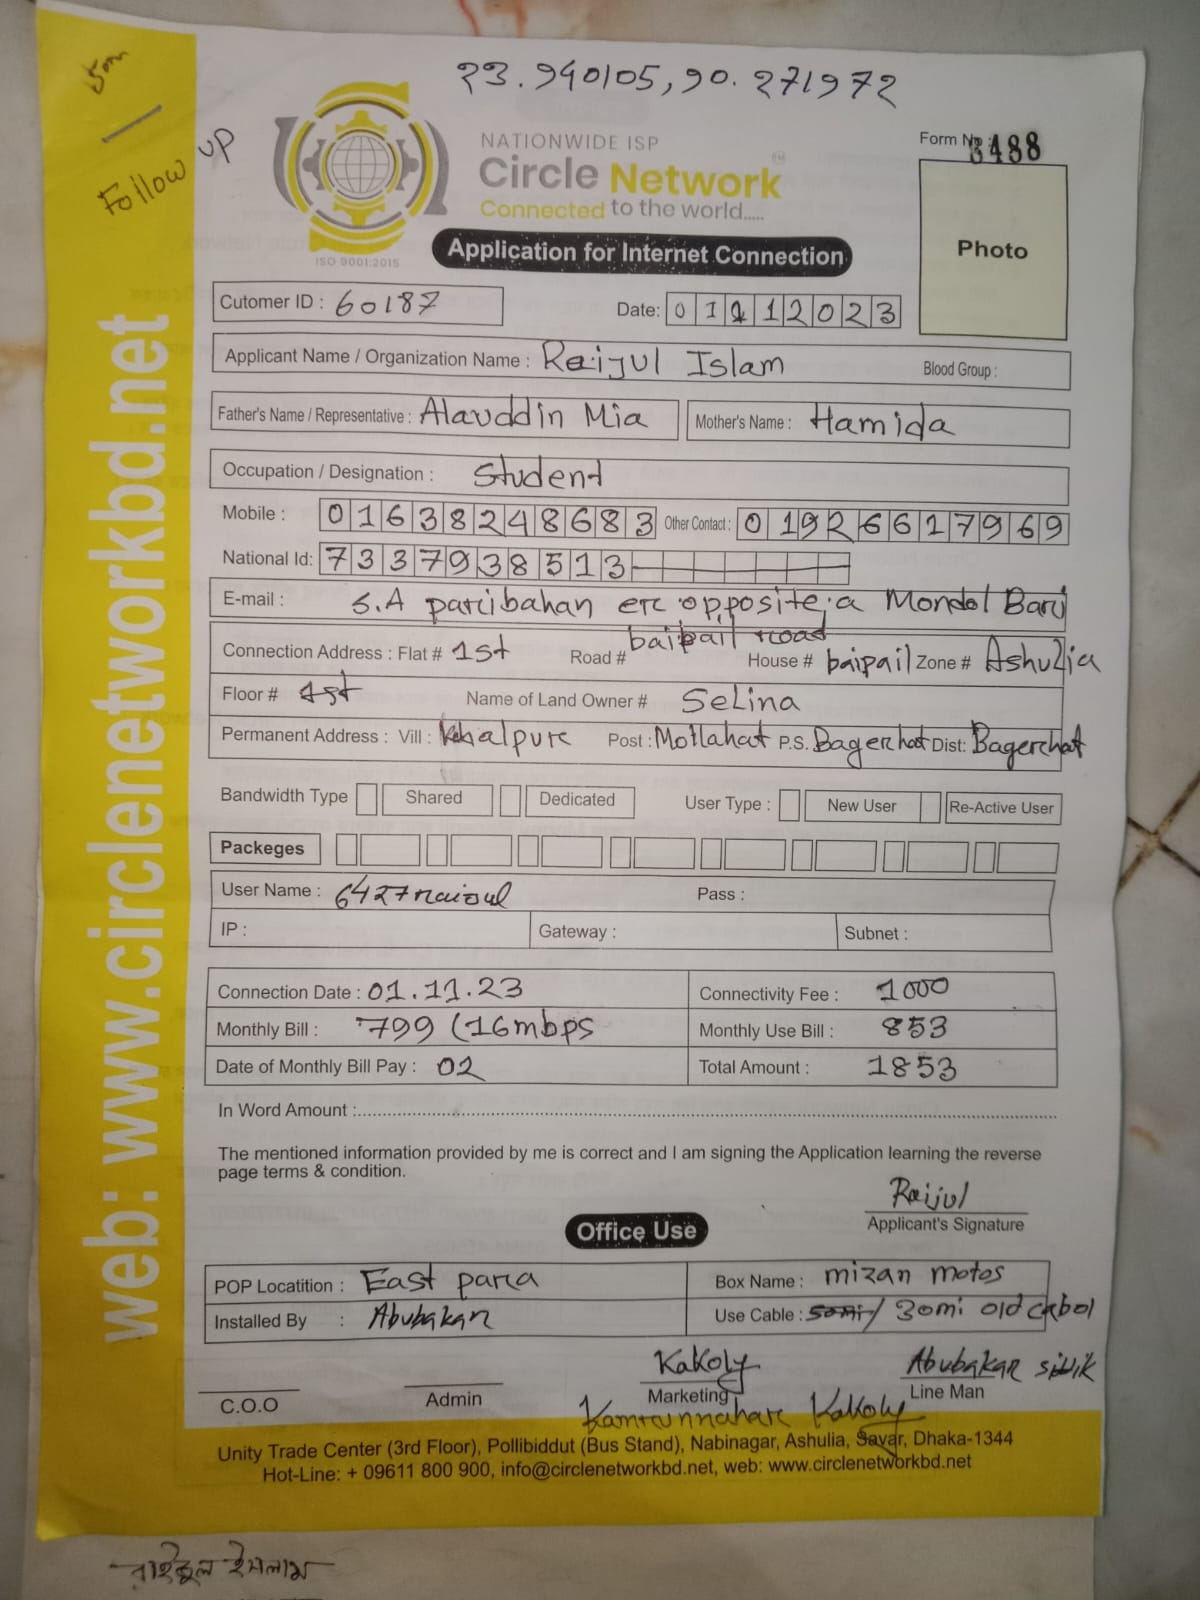 23.940105, 90.271972
Follow up
NATIONWIDE ISP
Circle Network
Connected to the world.....
ISO 9001:2015
Form No 3488
Photo
Application for Internet Connection
Cutomer ID : 60187
Date: 01112023
Applicant Name / Organization Name : Raijul Islam Blood Group :
Father's Name / Representative : Alauddin Mia Mother's Name : Hamida
Occupation / Designation : Student
Mobile : 01638248683 Other Contact : 01926617969
National Id: 7337938513
E-mail : S.A paribahan er opposite a Mondol Bari
baipail road
Connection Address : Flat # 1st Road # House # baipail Zone # Ashulia
Floor # 1st Name of Land Owner # Selina
Permanent Address : Vill : Post : Mollahat P.S. Bagerhat Dist: Bagerhat
Bandwidth Type Shared Dedicated User Type : New User Re-Active User
Packeges
User Name : 6427raizul Pass :
IP : Gateway : Subnet :
Connection Date : 01.11.23 Connectivity Fee : 1000
Monthly Bill : 799 (16mbps Monthly Use Bill : 853
Date of Monthly Bill Pay : 02 Total Amount : 1853
In Word Amount :
The mentioned information provided by me is correct and I am signing the Application learning the reverse
page terms & condition.
Raijul
Applicant's Signature
Office Use
POP Locatition : East para Box Name : mizan motos
Installed By : Abubakar Use Cable : 50mi / 30mi old cabol
Kakoly Abubakar
C.O.O Admin Marketing Line Man
Kamrunnahar Kakoly
Unity Trade Center (3rd Floor), Pollibiddut (Bus Stand), Nabinagar, Ashulia, Savar, Dhaka-1344
Hot-Line: + 09611 800 900, info@circlenetworkbd.net, web: www.circlenetworkbd.net
web: www.circlenetworkbd.net
রাইজুল ইসলাম